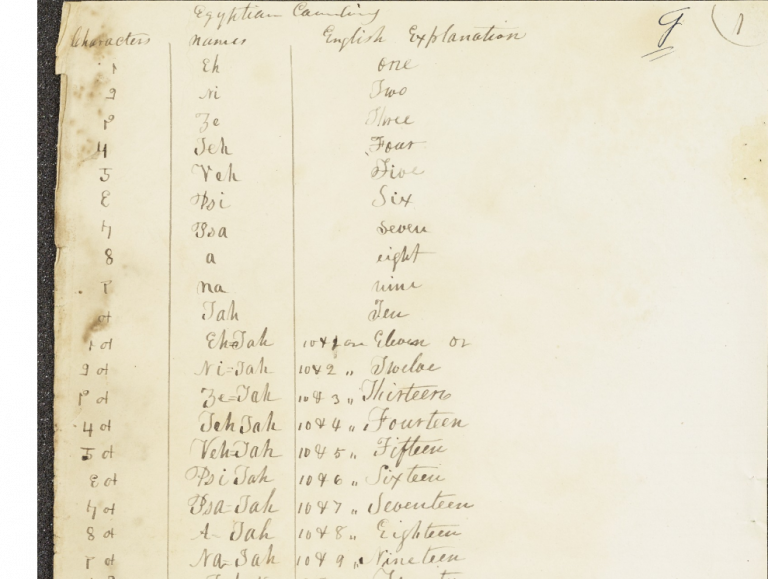 Egyptian Counting
Characters Names English Explanation
Eh one
Ni Two
Ze Three
4 Teh Four
5 Veh Five
Psi Six
Psa seven
8 a eight
na nine
Tah Ten
Eh=Tah 10 & 1 or Eleven or
Ni=Tah 10 & 2 „ Twelve
Ze=Tah 10 & 3 „ Thirteen
4 Teh Tah 10 & 4 „ Fourteen
5 Veh=Tah 10 & 5 „ Fifteen
Psi Tah 10 & 6 „ Sixteen
Psa=Tah 10 & 7 „ Seventeen
8 A=Tah 10 & 8 „ Eighteen
Na=Tah 10 & 9 „ Nineteen